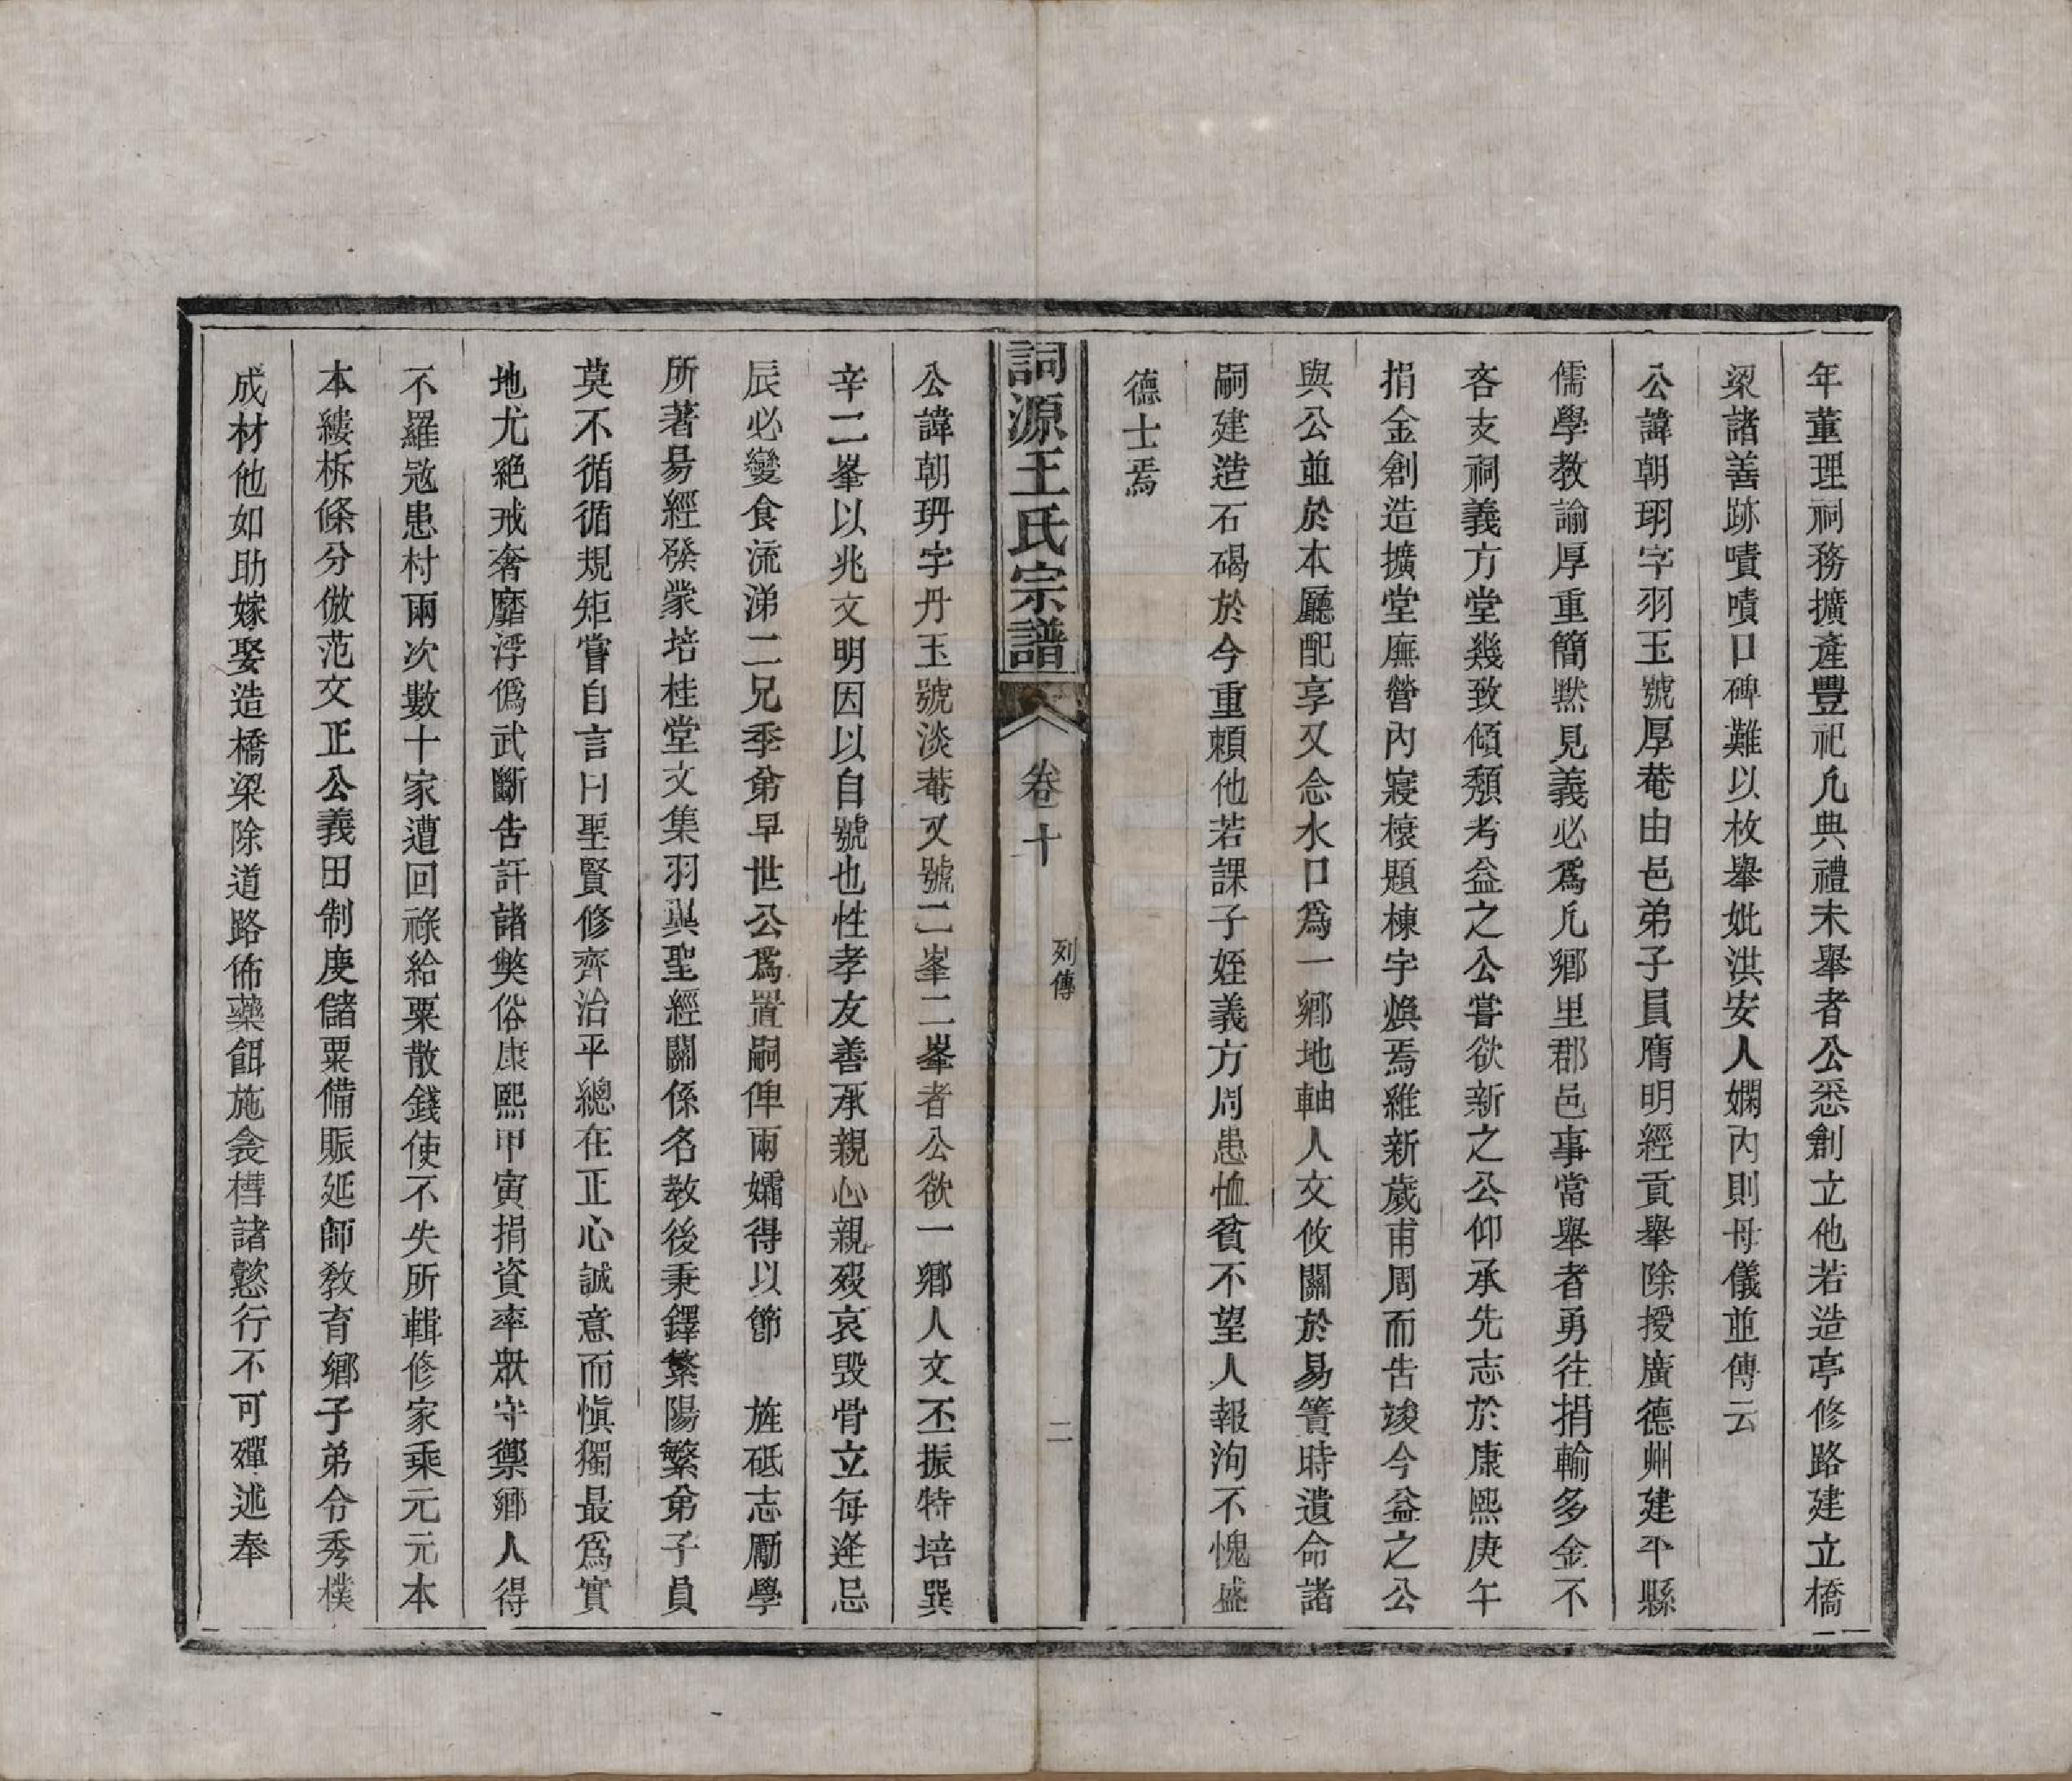 年董理祠務擴產豐祀凡典禮未舉者公悉創立他若造亭修路建立橋
梁諸善跡嘖嘖口碑難以枚舉妣洪安人嫻內則母儀並傳云
公諱朝珝字羽玉號厚菴由邑弟子員膺明經貢舉除授廣德州建平縣
儒學教諭厚重簡默見義必爲凡鄉里郡邑事當舉者勇往捐輸多金不
吝支祠義方堂幾致傾頽考益之公嘗欲新之公仰承先志於康熙庚午
捐金創造擴堂廡營內寢榱題棟宇煥焉維新歲甫周而吿竣今益之公
與公並於本廳配享又念水口爲一鄉地軸人文攸關於易簀時遺命諸
嗣建造石碣於今重頼他若課子姪義方周患恤貧不望人報洵不愧盛
德士焉
詞源王氏宗譜
卷十
列傳
二
公諱朝玬字丹玉號淡菴又號二峯二峯者公欲一鄉人文丕振特培巽
辛二峯以兆文明因以自號也性孝友善承親心親歿哀毁骨立每逢忌
辰必變食流涕二兄季弟早世公爲置嗣俾兩孀得以節　旌砥志勵學
所著易經發蒙培桂堂文集羽與聖經關係名教後秉鐸繁陽繁弟子員
莫不循循規矩嘗自言曰聖賢修齊治平總在正心誠意而慎獨最爲實
地尤絕戒奢靡浮僞武斷吿訐諸獘俗康熙甲寅捐資率眾守禦鄉人得
不羅寇患村兩次數十家遭回祿給粟散錢使不失所輯修家乘元元本
本縷柝條分倣范文正公義田制度儲粟備賑延師教育鄉子弟令秀樸
成材他如助嫁娶造橋梁除道路佈藥餌施衾槥諸懿行不可殫述奉